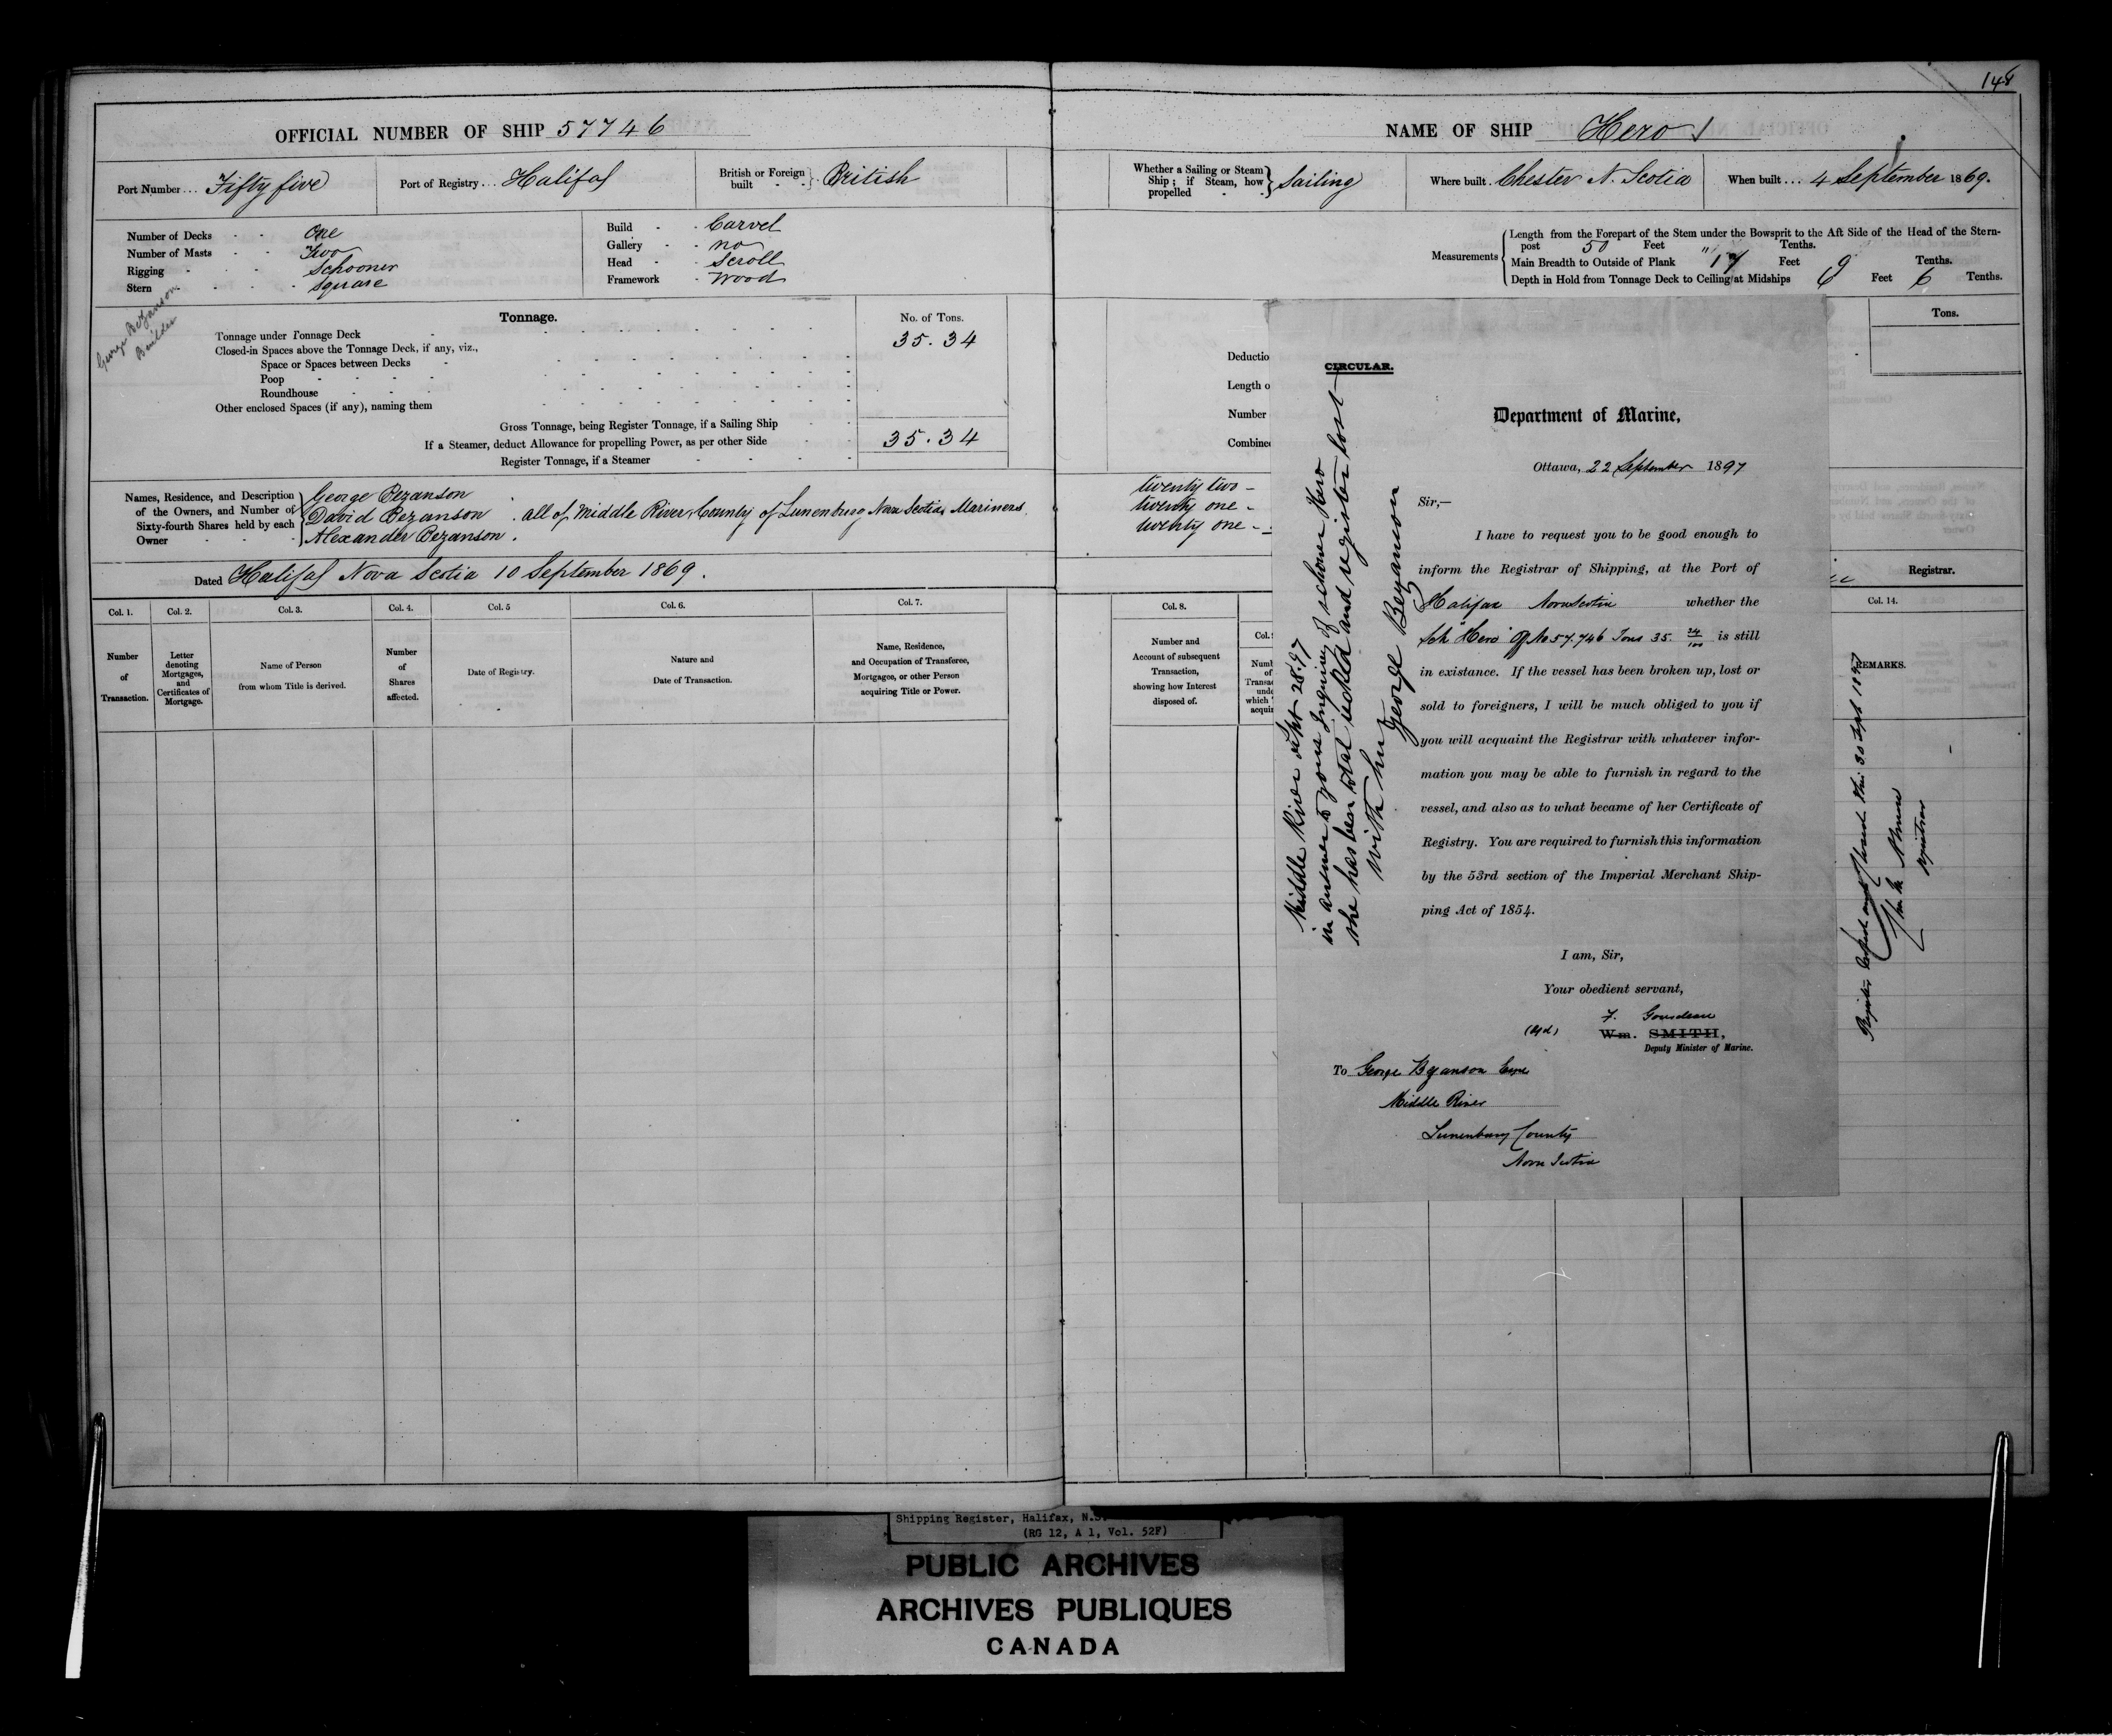 148
OFFICIAL NUMBER OF SHIP 57746
Port Number... Fifty five
Port of Registry... Halifax
British or Foreign built - - } British
Number of Decks - - One
Number of Masts - - Two
Rigging - - - Schooner
Stern - - - - Square
Build - - Carvel
Gallery - - no
Head - - Scroll
Framework - Wood
George Bezanson
Builder
Tonnage.
No. of Tons.
Tonnage under Tonnage Deck 35.34
Closed-in Spaces above the Tonnage Deck, if any, viz.,
Space or Spaces between Decks
Poop
Roundhouse
Other enclosed Spaces (if any), naming them
Gross Tonnage, being Register Tonnage, if a Sailing Ship
If a Steamer, deduct Allowance for propelling Power, as per other Side 35.34
Register Tonnage, if a Steamer
Names, Residence, and Description of the Owners, and Number of Sixty-fourth Shares held by each Owner
George Bezanson
David Bezanson . all of Middle River, County of Lunenburg Nova Scotia Mariners.
Alexander Bezanson .
Dated Halifax Nova Scotia 10 September 1869.
Col. 1. Col. 2. Col. 3. Col. 4. Col. 5 Col. 6. Col. 7.
Number of Transaction.
Letter denoting Mortgages, and Certificates of Mortgage.
Name of Person from whom Title is derived.
Number of Shares affected.
Date of Registry.
Nature and Date of Transaction.
Name, Residence, and Occupation of Transferee, Mortgagee, or other Person acquiring Title or Power.
NAME OF SHIP Hero
Whether a Sailing or Steam Ship; if Steam, how propelled - - } Sailing
Where built. Chester N. Scotia
When built... 4 September 1869.
Measurements
Length from the Forepart of the Stem under the Bowsprit to the Aft Side of the Head of the Stern-
post 50 Feet " Tenths.
Main Breadth to Outside of Plank 17 Feet 9 Tenths.
Depth in Hold from Tonnage Deck to Ceiling at Midships 6 Feet 6 Tenths.
Tons.
Deductio
Length o
Number
Combine
twenty two -
twenty one -
twenty one -
Registrar.
Col. 8.
Col.
Col. 14.
Number and Account of subsequent Transaction, showing how Interest disposed of.
Numb
of
Transac
unde
which
acquir
REMARKS.
CIRCULAR.
Department of Marine,
Ottawa, 22 September 1897
Sir,—
I have to request you to be good enough to
inform the Registrar of Shipping, at the Port of
Halifax Nova Scotia whether the
Sch "Hero" Of No 57.746 Tons 35. 34/100 is still
in existance. If the vessel has been broken up, lost or
sold to foreigners, I will be much obliged to you if
you will acquaint the Registrar with whatever infor-
mation you may be able to furnish in regard to the
vessel, and also as to what became of her Certificate of
Registry. You are required to furnish this information
by the 53rd section of the Imperial Merchant Ship-
ping Act of 1854.
I am, Sir,
Your obedient servant,
F. Gourdeau
Wm. SMITH,
Deputy Minister of Marine.
To George Bezanson Esqre
Middle River
Lunenburg County
Nova Scotia
Middle River Sept 28.97
in answer to your Inquiry of schoner Hero
she has bean total and register lost
with her George Bezanson
Register closed this 30 Sept 1897
Registrar
Shipping Register, Halifax, N.S.
(RG 12, A 1, Vol. 52F)
PUBLIC ARCHIVES
ARCHIVES PUBLIQUES
CANADA